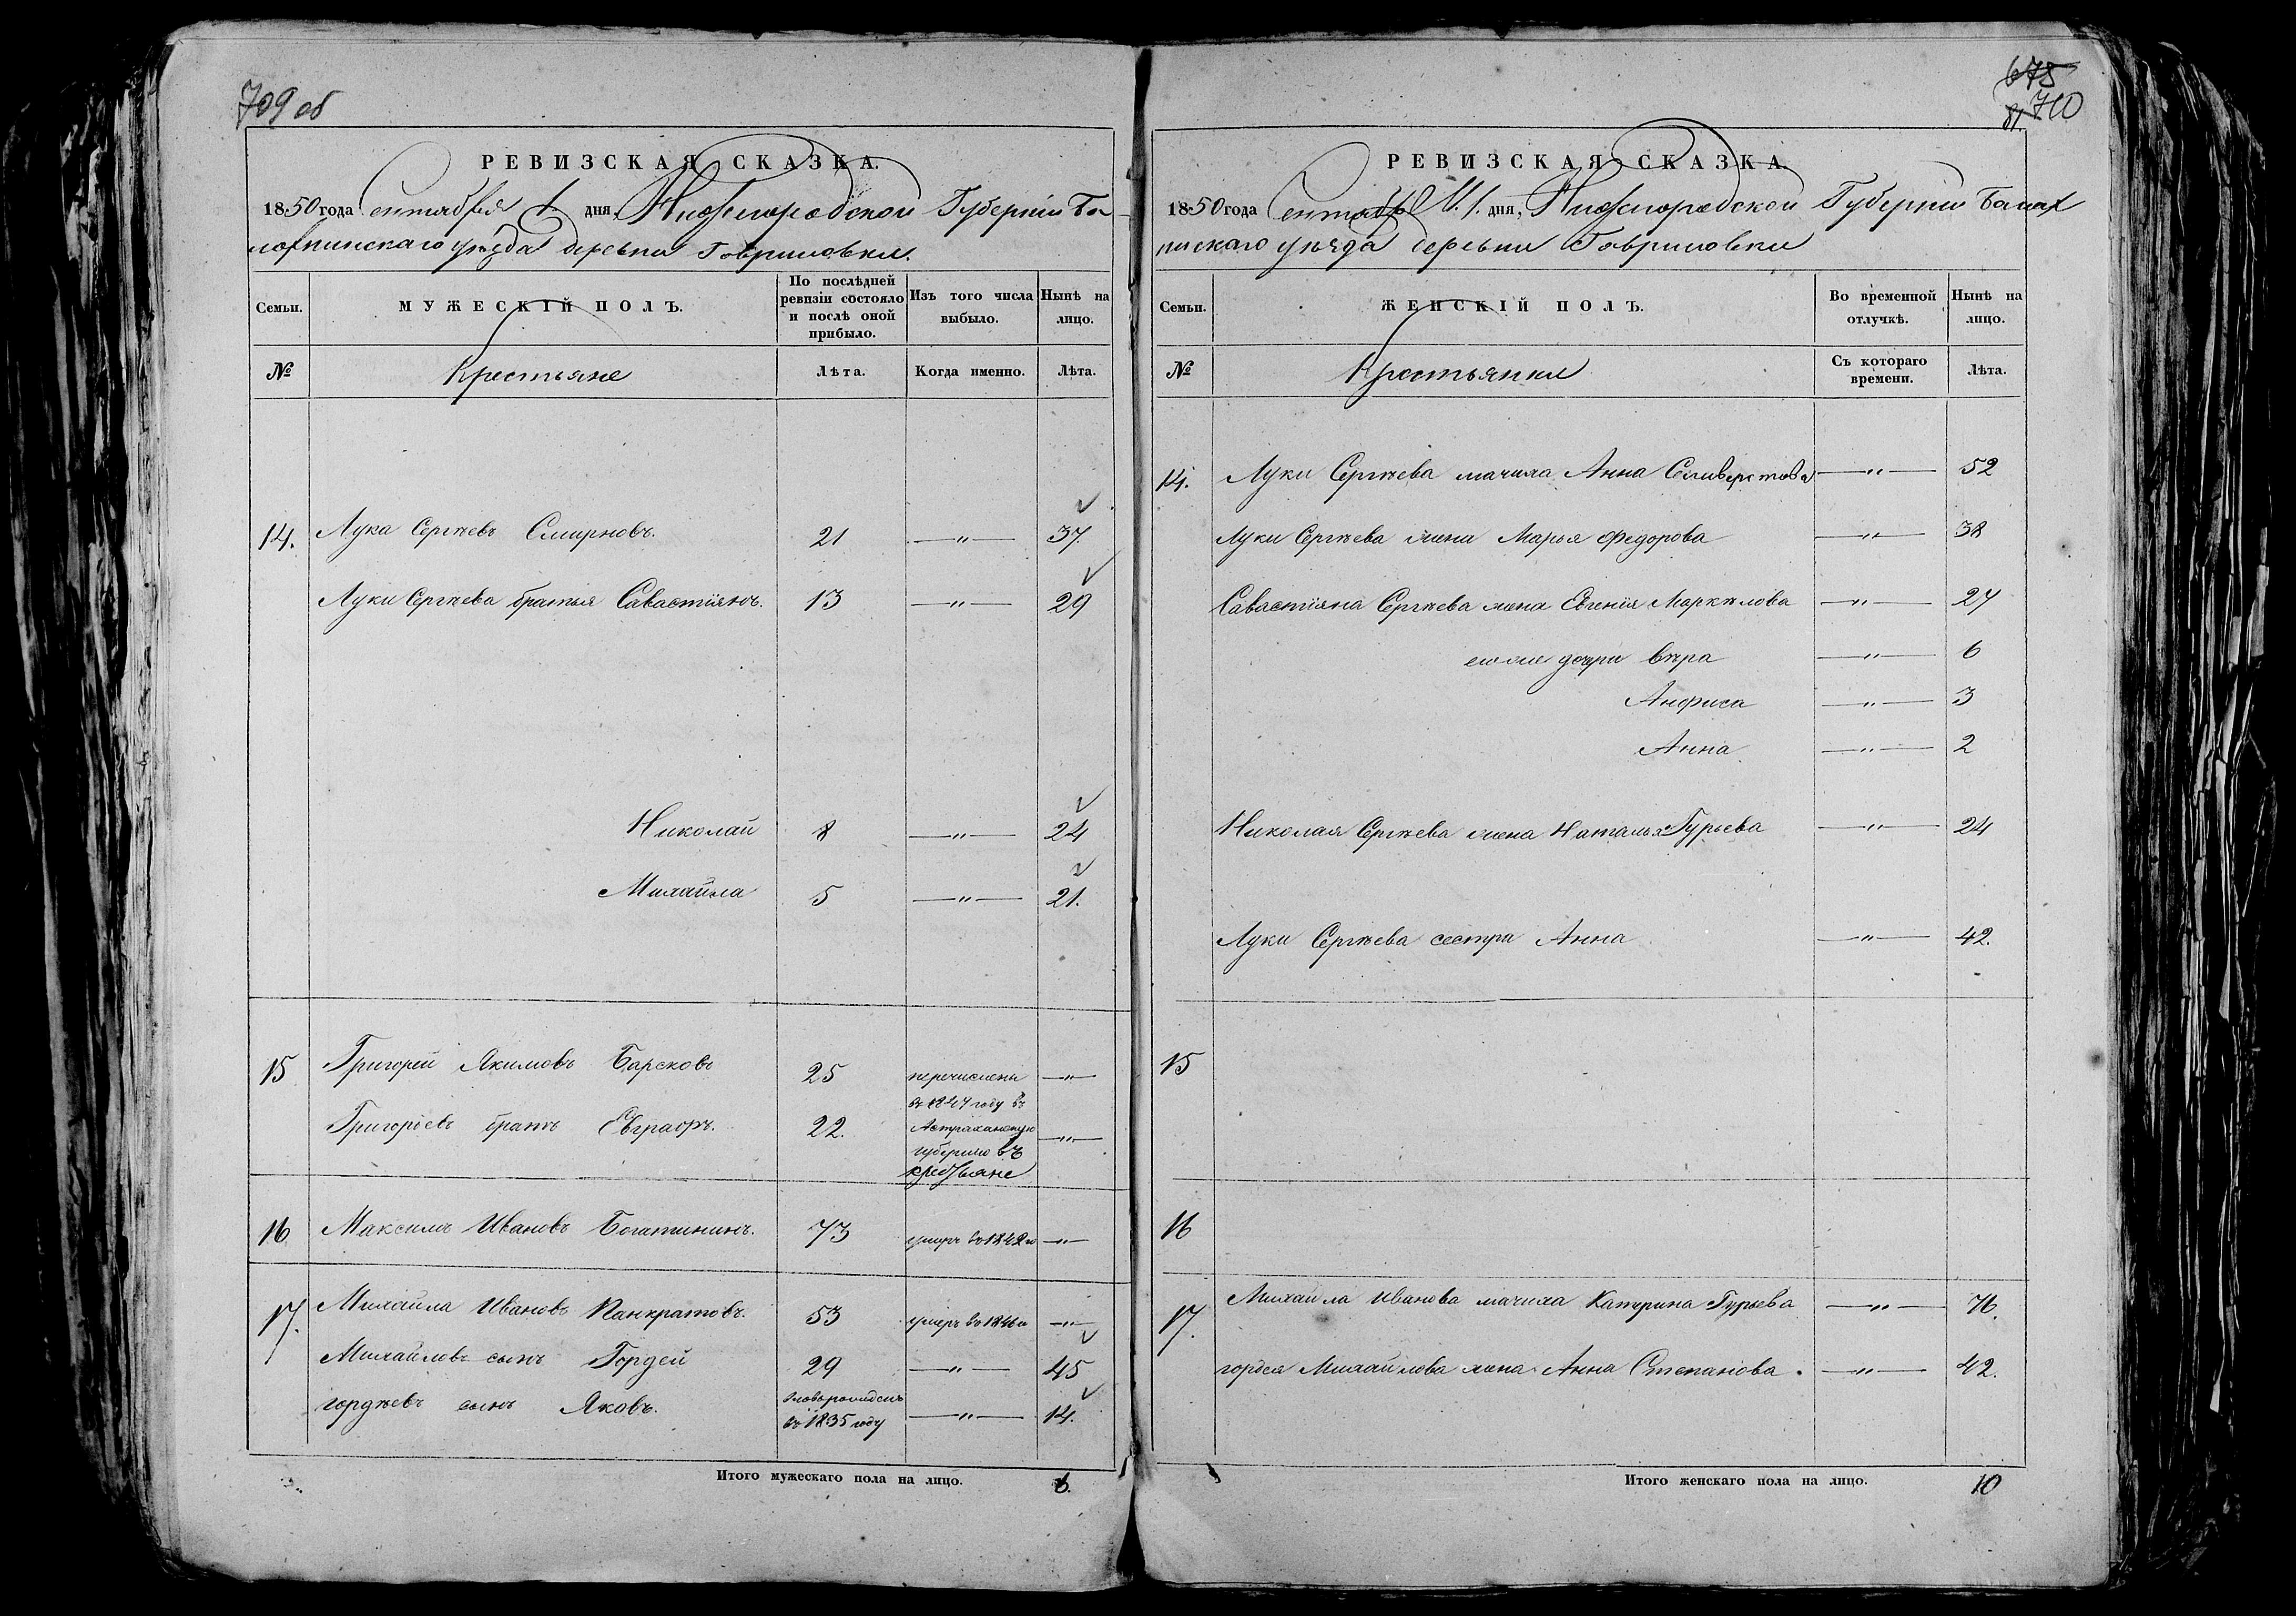 709 об
РЕВИЗСКАЯ СКАЗКА.
1850 года сентября 1 дня, Нижегородской Губерніи Ба-
лахнинскаго уѣзда деревни Гавриловки.
Семьи.
МУЖЕСКІЙ ПОЛЪ.
По послѣдней ревизіи состояло и послѣ оной прибыло.
Изъ того числа выбыло.
Нынѣ на лицо.
№
Крестьяне
Лѣта.
Когда именно.
Лѣта.
14. Лука Сергѣевъ Смирновъ. 21 —"— 37
Луки Сергѣева братья Савастіянъ. 13 —"— 29
Николай 8 —"— 24
Михайла 5 —"— 21.
15 Григорей Якимовъ Барсковъ 25 перечислены —"—
въ 1847 году въ
Григорьевъ братъ Евграфъ. 22. Астраханскую —"—
губернію въ
крестьяне
16 Максимъ Ивановъ Богатининъ. 73 умеръ въ 1842 м —"—
17. Михайла Ивановъ Панкратовъ. 53 умеръ въ 1846 м —"—
Михайловъ сынъ Гордей 29 —"— 45
гордѣевъ сынъ Яковъ. новорожденъ въ 1835 году —"— 14.
Итого мужескаго пола на лицо. 6.
675
81. 710
РЕВИЗСКАЯ СКАЗКА.
1850 года Сентября 1. дня, Нижегородской Губерніи Балах
нинскаго уѣзда деревни Гавриловки
Семьи.
ЖЕНСКІЙ ПОЛЪ.
Во временной отлучкѣ.
Нынѣ на лицо.
№
Крестьянки
Съ котораго времени.
Лѣта.
14. Луки Сергѣева мачиха Анна Селиверстова —"— 52
Луки Сергѣева жена Марья Федорова —"— 38
Савастіяна Сергѣева жена Евгенія Маркѣлова —"— 27
ево же дочри вѣра —"— 6
Анфиса —"— 3
Анна —"— 2
Николая Сергѣева жена Наталья Гурьева —"— 24
Луки Сергѣева сестра Анна —"— 42.
15
16
17. Михайла Иванова мачиха Катерина Гурьева —"— 76.
гордея Михайлова жена Анна Степанова. —"— 42.
Итого женскаго пола на лицо. 10